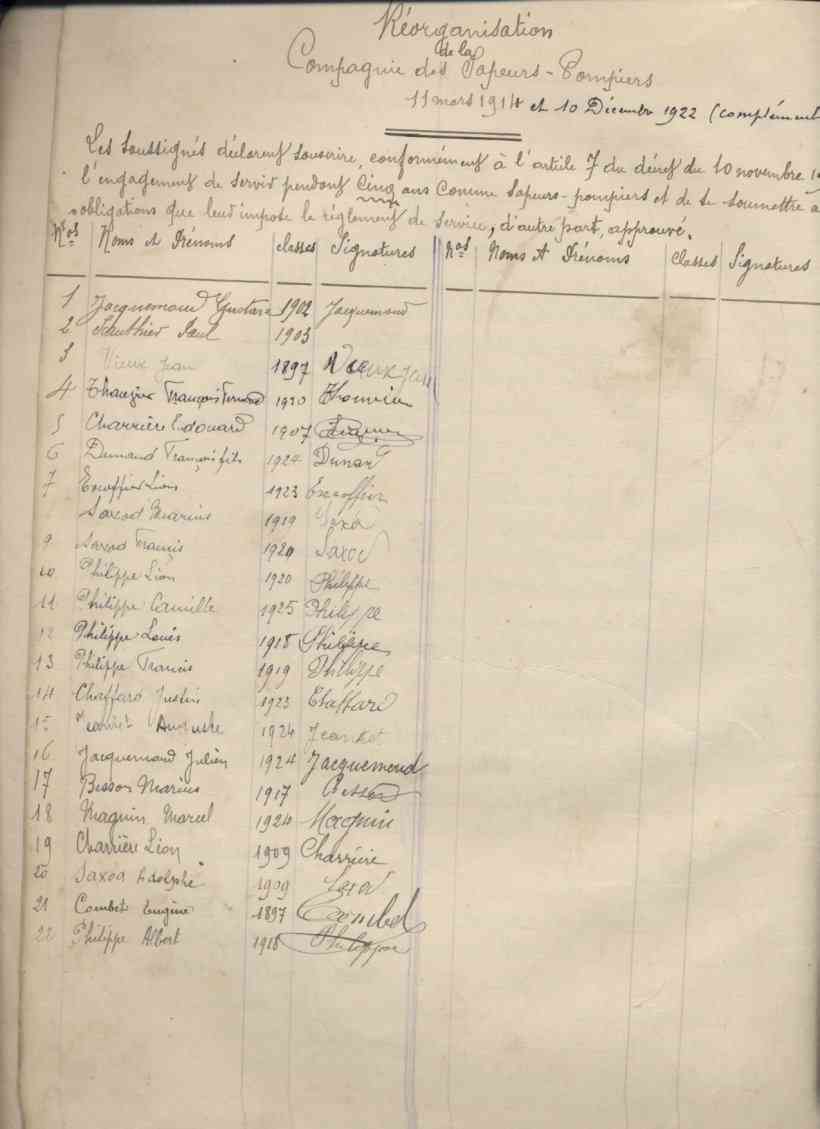 Réorganisation
de la
Compagnie des Sapeurs-Pompiers
11 mars 1914 et 10 Décembre 1922 (complément
Les soussignés déclarent souscrire, conformément à l'article 7 du décret du 10 novembre
l'engagement de servir pendant Cinq ans comme sapeurs-pompiers et de se soumettre a
obligations que leur impose le règlement de service, d'autre part, approuvé.
Nos Noms et Prénoms Classes Signatures Nos Noms et Prénoms Classes Signatures
1 Jacquemoud Gustave 1902 Jacquemoud
2 Gauthier Paul 1903
3 Vieux Jean 1897 Vieux Jean
4 François Fernand 1920
5 Charrière Edouard 1907
6 Dunand François fils 1924 Dunand
7 Excoffier Léon 1923 Excoffier
Saxod Marius 1919 Saxod
9 Saxod Francis 1920 Saxod
10 Philippe Léon 1920 Philippe
11 Philippe Camille 1925 Philippe
12 Philippe Louis 1918 Philippe
13 Philippe Francis 1919 Philippe
14 Chaffard Justin 1923 Chaffard
15 Jeantet Auguste 1924 Jeantet
16 Jacquemoud Julien 1924 Jacquemoud
17 Besson Marius 1917 Besson
18 Magnin Marcel 1924 Magnin
19 Charrière Léon 1909 Charrière
20 Saxod Adolphe 1909 Saxod
21 Combet Eugène 1897 Combet
22 Philippe Albert 1918 Philippe